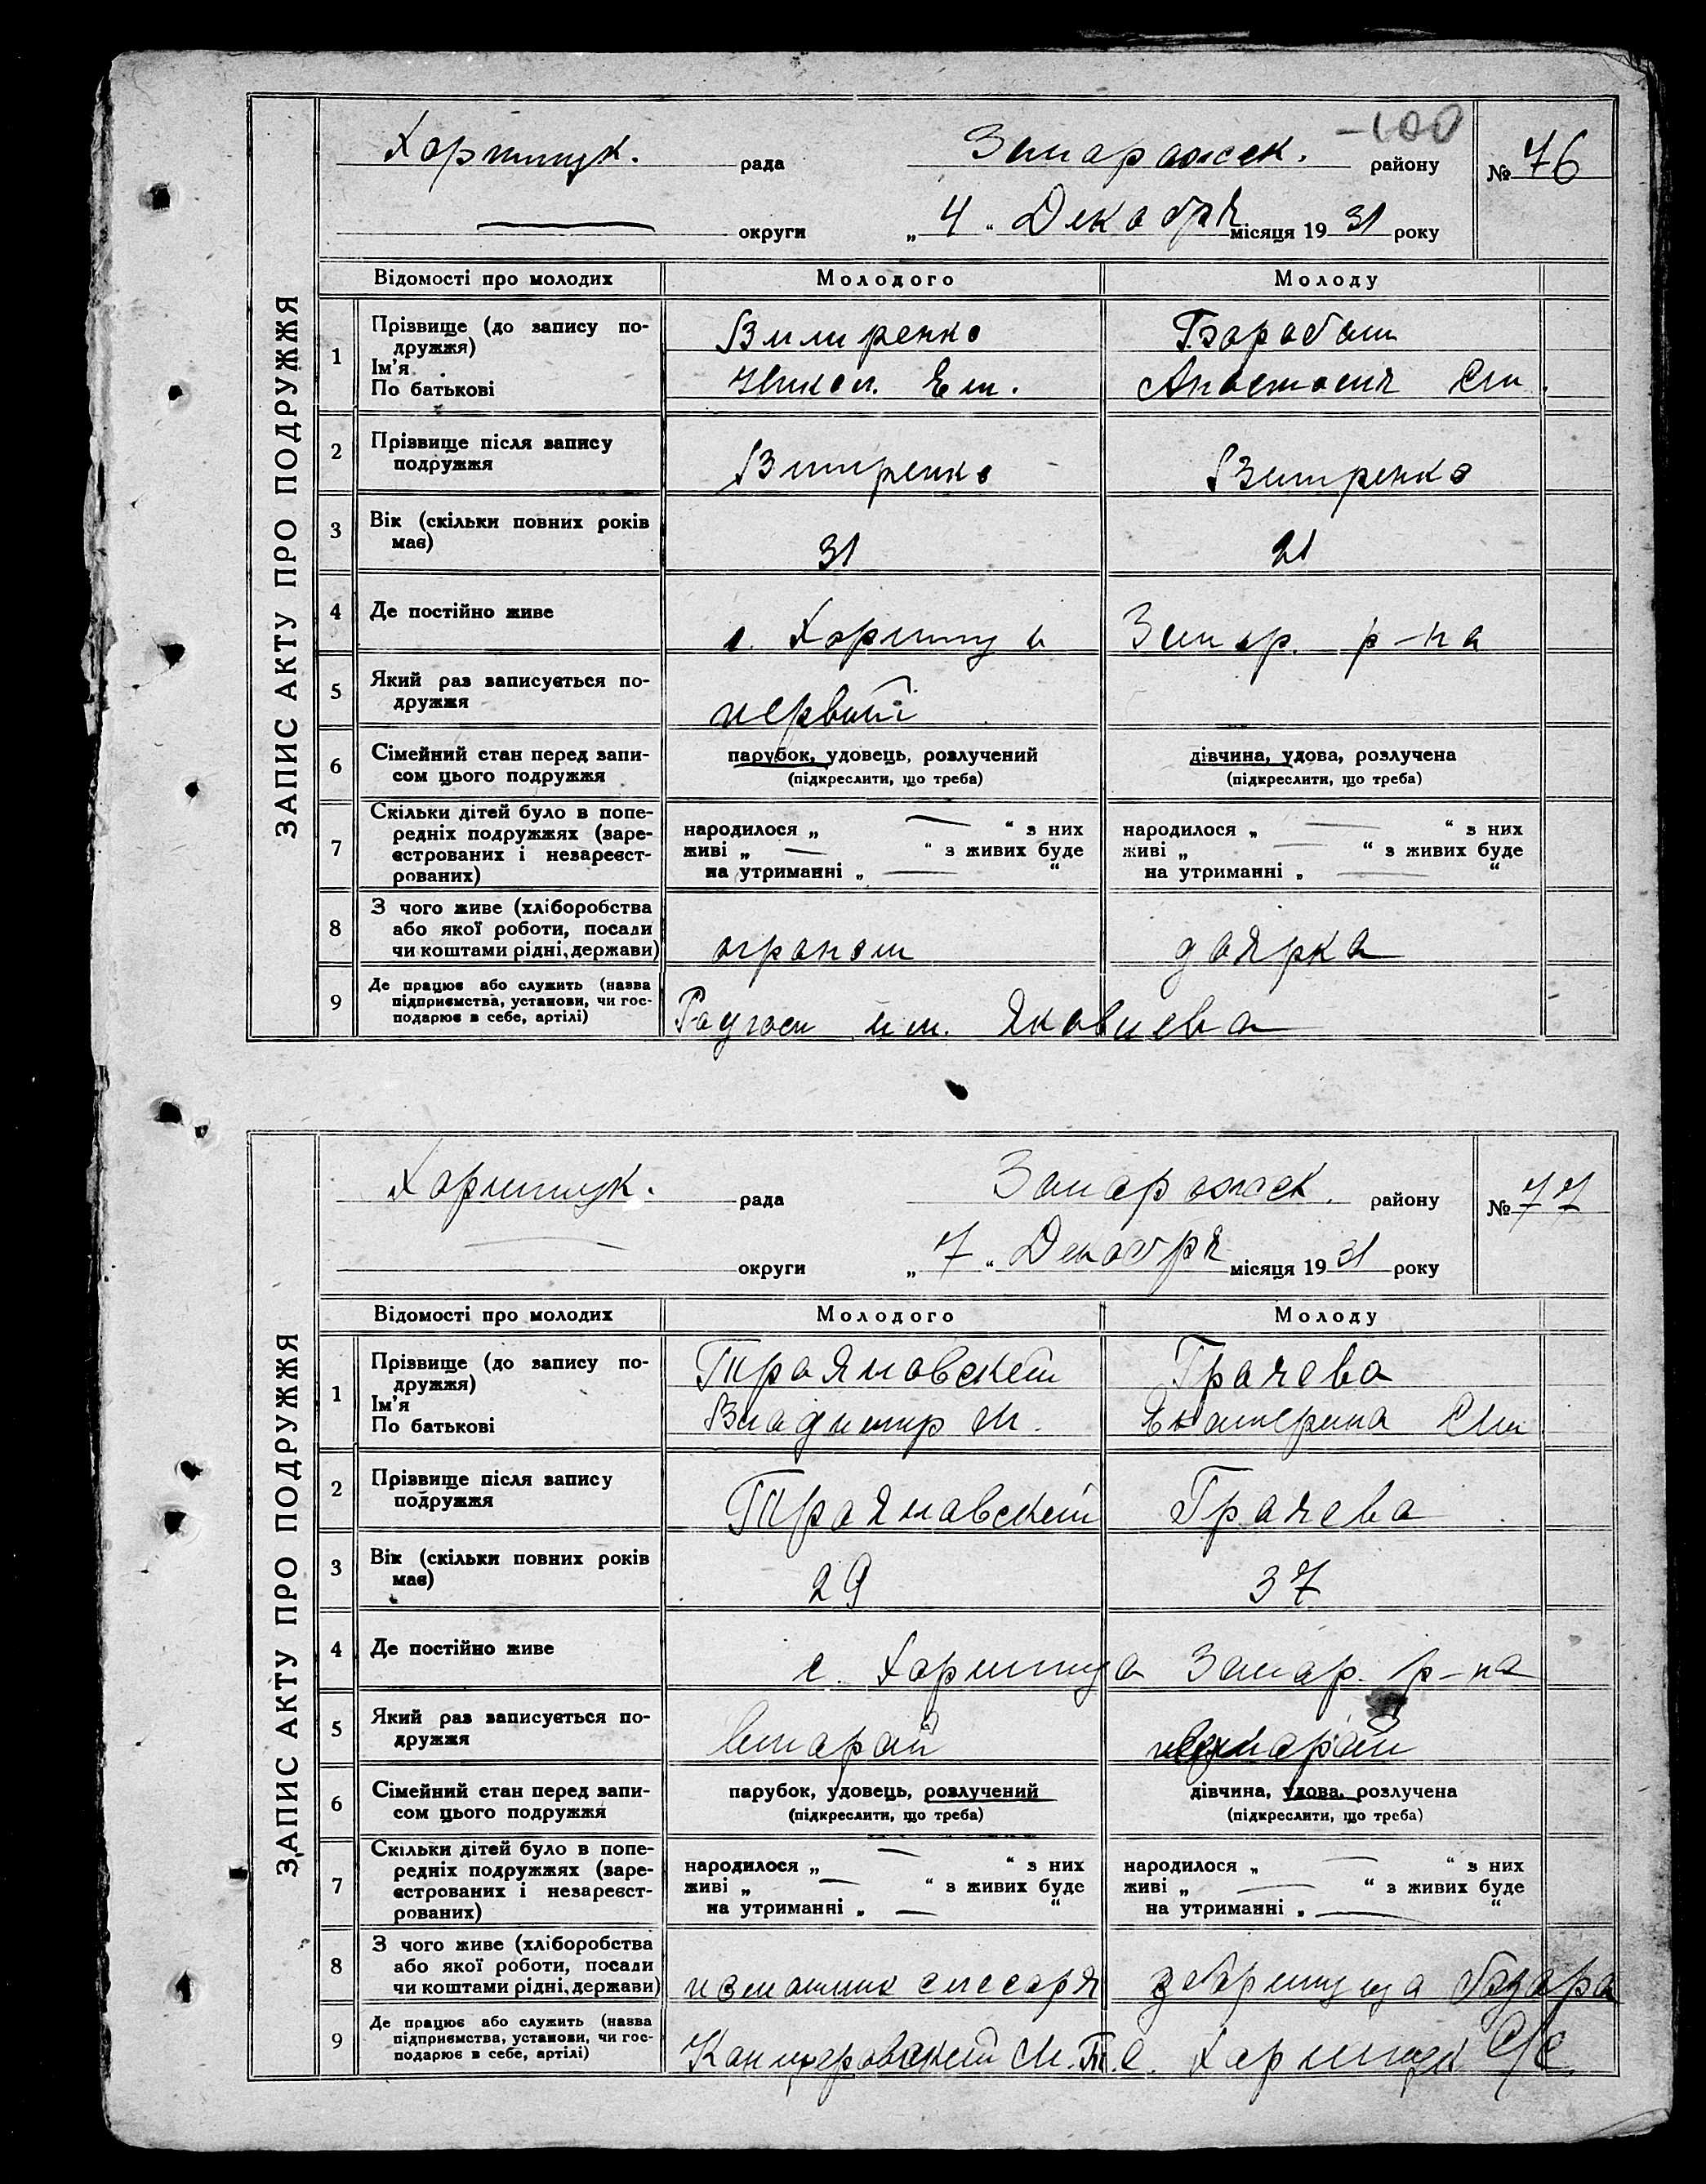 ЗАПИС АКТУ ПРО ПОДРУЖЖЯ
Хортицк. рада Запарожск. району -100 № 76
округи „ 4 “ Декабря місяця 19 31 року
Відомості про молодих Молодого Молоду
1 Прізвище (до запису по-
дружжя)
Ім'я
По батькові
Витренко Барабаш
Никол. Ем. Анастасия
2 Прізвище після запису
подружжя
Витренко Витренко
3 Вік (скільки повних років
має)
31 21
4 Де постійно живе
с. Хортица Запор. р-на
5 Який раз записується по-
дружжя
первый
6 Сімейний стан перед запи-
сом цього подружжя
парубок, удовець, розлучений
(підкреслити, що треба)
дівчина, удова, розлучена
(підкреслити, що треба)
7 Скільки дітей було в попе-
редніх подружжях (заре-
єстрованих і незареєст-
рованих)
народилося „ — “ з них
живі „ — “ з живих буде
на утриманні „ — “
народилося „ — “ з них
живі „ — “ з живих буде
на утриманні „ — “
8 З чого живе (хліборобства
або якої роботи, посади
чи коштами рідні, держави)
агроном доярка
9 Де працює або служить (назва
підприємства, установи, чи гос-
подарює в себе, артілі)
Радгосп им. Яковлева
ЗАПИС АКТУ ПРО ПОДРУЖЖЯ
Хортицк. рада Запарожск. району № 77
округи „ 7 “ Декабря місяця 19 31 року
Відомості про молодих Молодого Молоду
1 Прізвище (до запису по-
дружжя)
Ім'я
По батькові
Трояновский Грачева
Владимир М. Екатерина
2 Прізвище після запису
подружжя
Трояновский Грачева
3 Вік (скільки повних років
має)
29 37
4 Де постійно живе
с. Хортица Запар. р-на
5 Який раз записується по-
дружжя
вторай вторай
6 Сімейний стан перед запи-
сом цього подружжя
парубок, удовець, розлучений
(підкреслити, що треба)
дівчина, удова, розлучена
(підкреслити, що треба)
7 Скільки дітей було в попе-
редніх подружжях (заре-
єстрованих і незареєст-
рованих)
народилося „ — “ з них
живі „ — “ з живих буде
на утриманні „ — “
народилося „ — “ з них
живі „ — “ з живих буде
на утриманні „ — “
8 З чого живе (хліборобства
або якої роботи, посади
чи коштами рідні, держави)
слесаря базара
9 Де працює або служить (назва
підприємства, установи, чи гос-
подарює в себе, артілі)
Канцеровский М.Т.С. Хортицк С/С